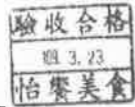 驗收合格
109. 3. 23
怡饗美食